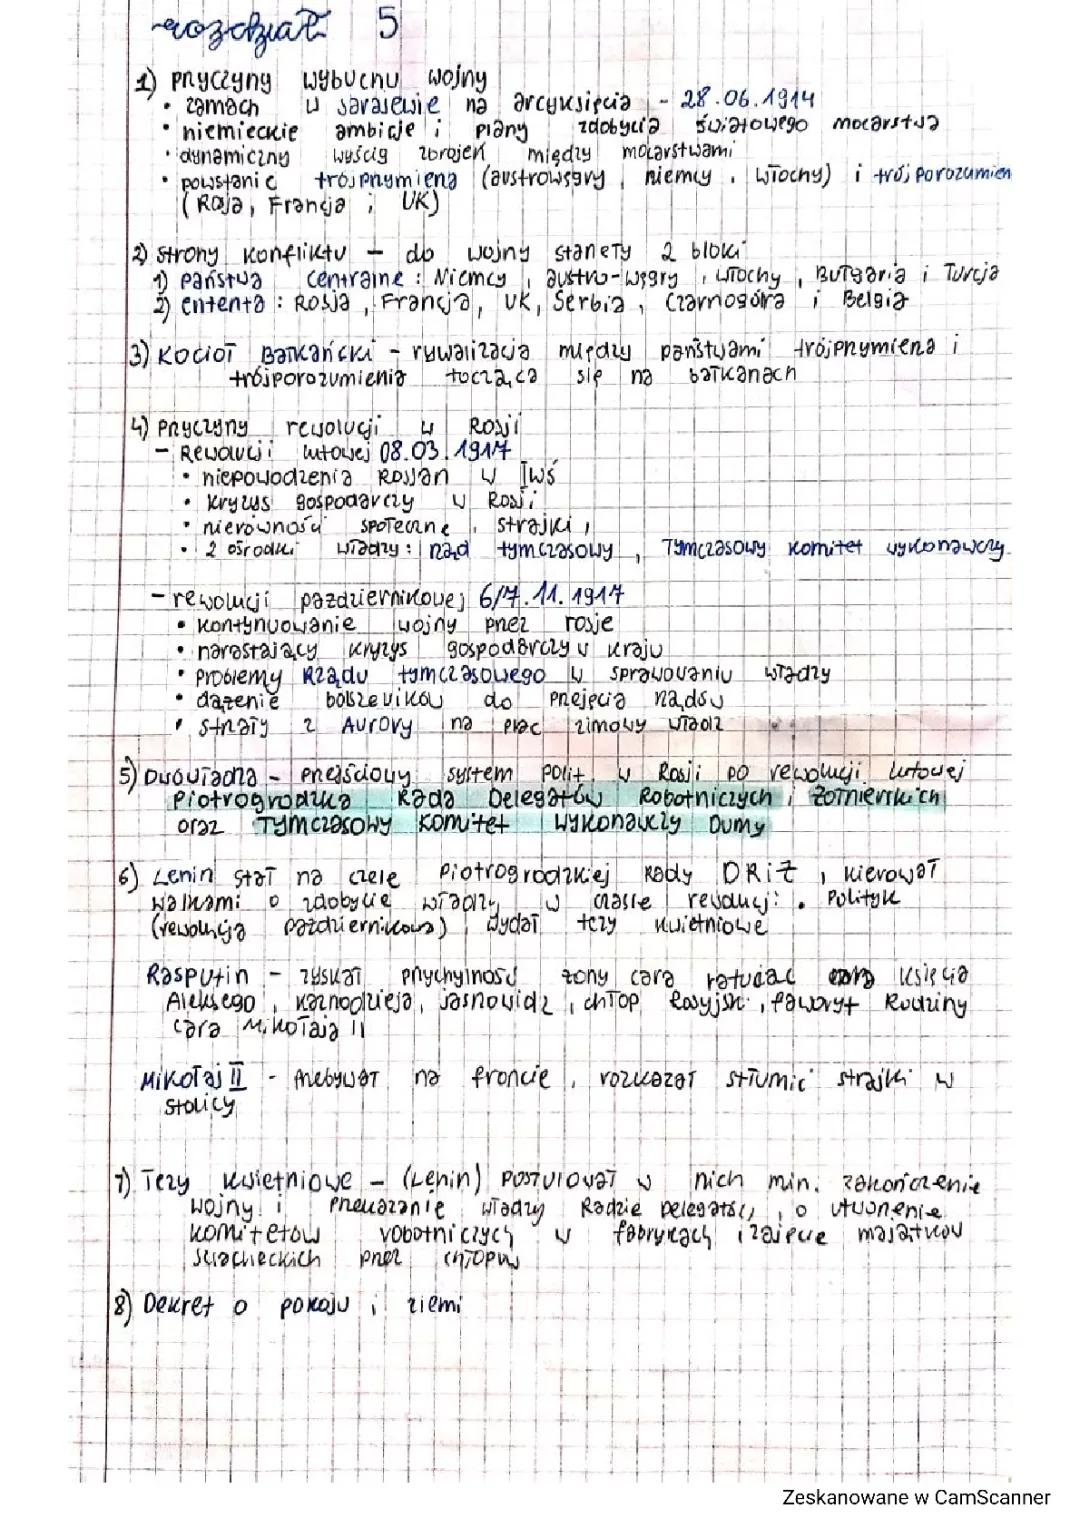 rozdział 5
1) przyczyny wybuchu wojny
• zamach w sarajewie na arcyksięcia - 28.06.1914
• niemieckie ambicje i plany zdobycia światowego mocarstwa
• dynamiczny wyścig zbrojeń między mocarstwami
• powstanie trójprzymierza (austrowęgry, niemcy, włochy) i trójporozumien
(Rosja, Francja i UK)
2) strony konfliktu - do wojny stanęły 2 bloki
1) państwa centralne: Niemcy, austro-węgry, włochy, Bułgaria i Turcja
2) ententa: Rosja, Francja, UK, Serbia, Czarnogóra i Belgia
3) Kocioł Bałkański - rywalizacja między państwami trójprzymierza i
trójporozumienia tocząca się na bałkanach
4) przyczyny rewolucji w Rosji
- Rewolucji lutowej 08.03.1917
• niepowodzenia Rosjan w IWŚ
• kryzys gospodarczy w Rosji
• nierówności społeczne, strajki,
• 2 ośrodki władzy: rząd tymczasowy, Tymczasowy komitet wykonawczy
- rewolucji pazdziernikowej 6/7.11.1917
• kontynuowanie wojny przez rosje
• narastający kryzys gospodarczy w kraju
• problemy Rządu tymczasowego w sprawowaniu władzy
• dążenie bolszewików do przejęcia rządów
• strzały z Aurory na płac zimowy władz
5) Dwówładza - przejściowy system polit. w Rosji po rewolucji lutowej
Piotrogrodzka Rada Delegatów Robotniczych i Żołnierskich
oraz Tymczasowy Komitet Wykonawczy Dumy
6) Lenin stał na czele Piotrogrodzkiej Rady DRiŻ, kierował
walkami o zdobycie władzy w czasie rewolucji. Polityk
(rewolucja październikowa) wydał tezy kwietniowe
Rasputin - zyskał przychylność żony cara ratując księcia
Aleksego, kaznodzieja, jasnowidz, chłop Rosyjski, faworyt Rodziny
cara Mikołaja II
Mikołaj II - przebywał na froncie, rozkazał stłumić strajki w
stolicy
7) Tezy kwietniowe - (Lenin) postulował w nich min. zakończenie
wojny i przekazanie władzy Radzie Delegatów, o utworzenie
komitetów robotniczych w fabrykach i zajęcie majątków
szlacheckich przez chłopów
8) Dekret o pokoju i ziemi
Zeskanowane w CamScanner